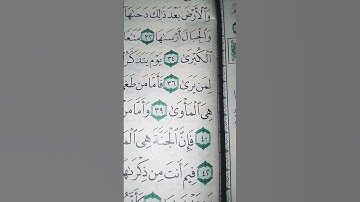 وَٱلْأَرْضَ بَعْدَ ذَٰلِكَ دَحَىٰهَا
وَٱلْجِبَالَ أَرْسَىٰهَا ٣٢ مَتَٰعًا
ٱلْكُبْرَىٰ ٣٤ يَوْمَ يَتَذَكَّرُ
لِمَن يَرَىٰ ٣٦ فَأَمَّا مَن طَغَىٰ
هِىَ ٱلْمَأْوَىٰ ٣٩ وَأَمَّا مَنْ
٤٠ فَإِنَّ ٱلْجَنَّةَ هِىَ ٱلْمَ
٤٢ فِيمَ أَنتَ مِن ذِكْرَىٰهَا